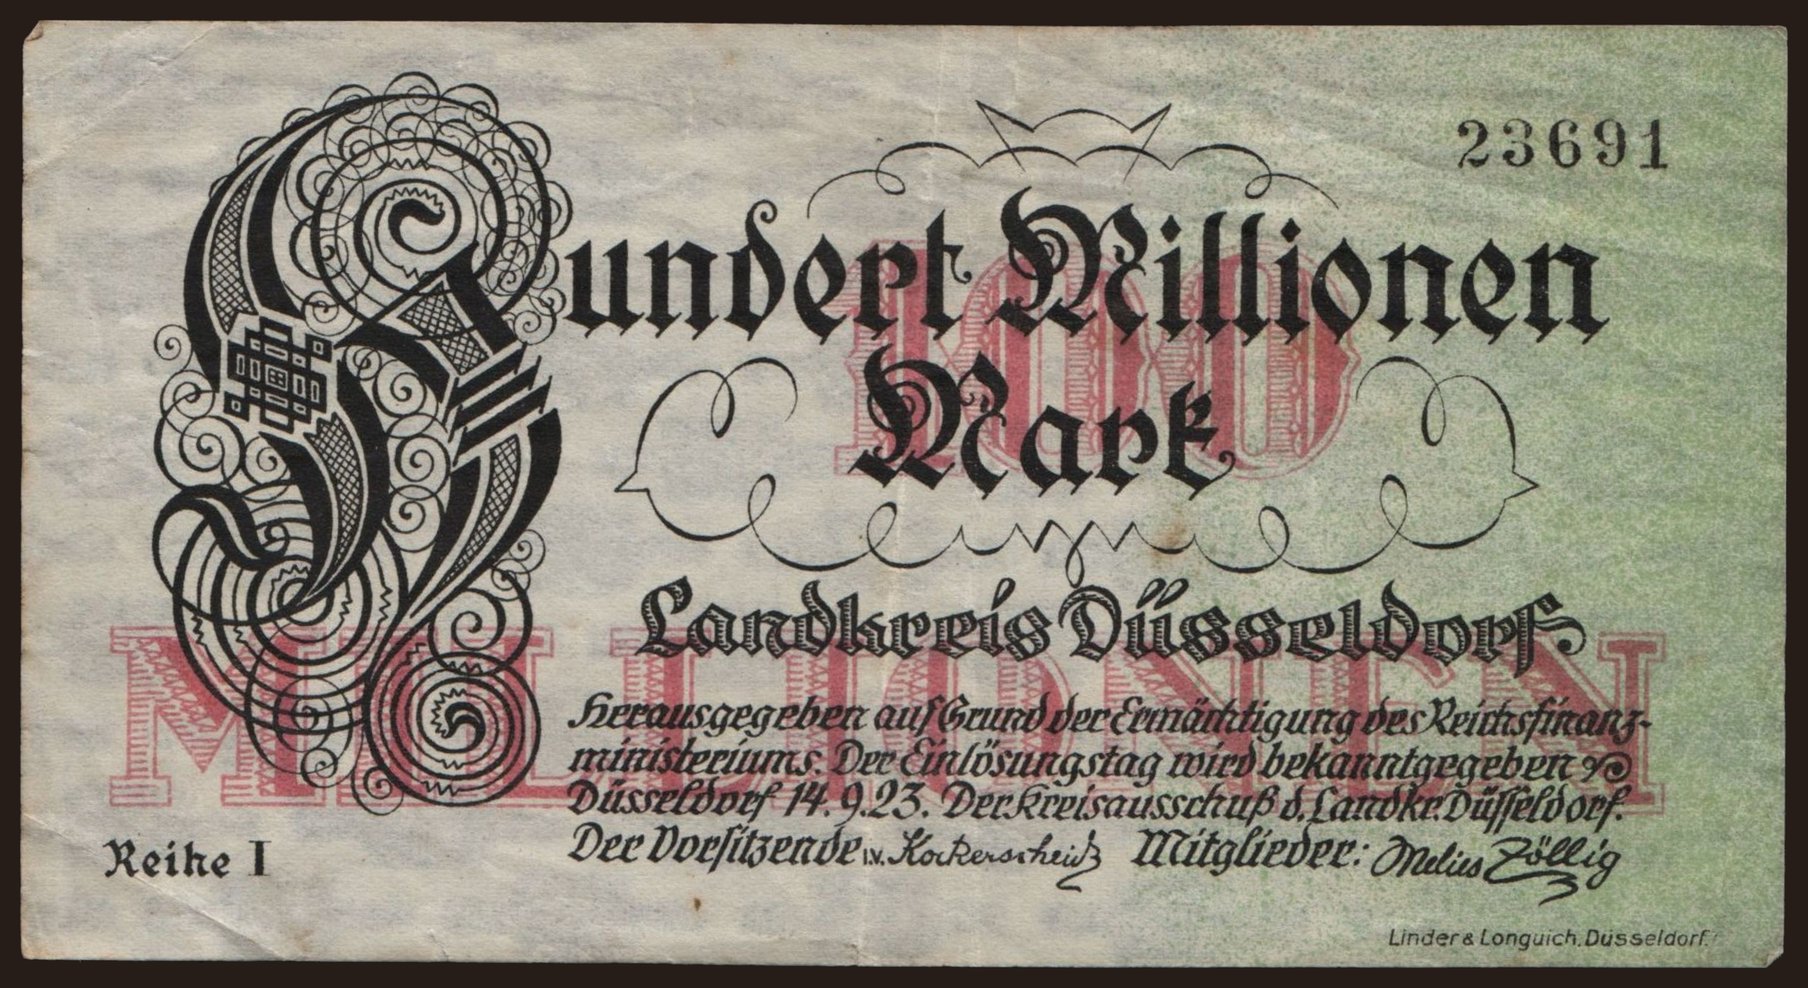 23691
Hundert Millionen
100
Mark
Landkreis Düsseldorf
MILLIONEN
Herausgegeben auf Grund der Ermächtigung des Reichsfinanz-
ministeriums. Der Einlösungstag wird bekanntgegeben
Düsseldorf 14.9.23. Der Kreisausschuß d. Landkr. Düsseldorf.
Der Vorsitzende i.V. Mitglieder: Melies Zöllig
Reihe I
Linder & Longuich, Düsseldorf.